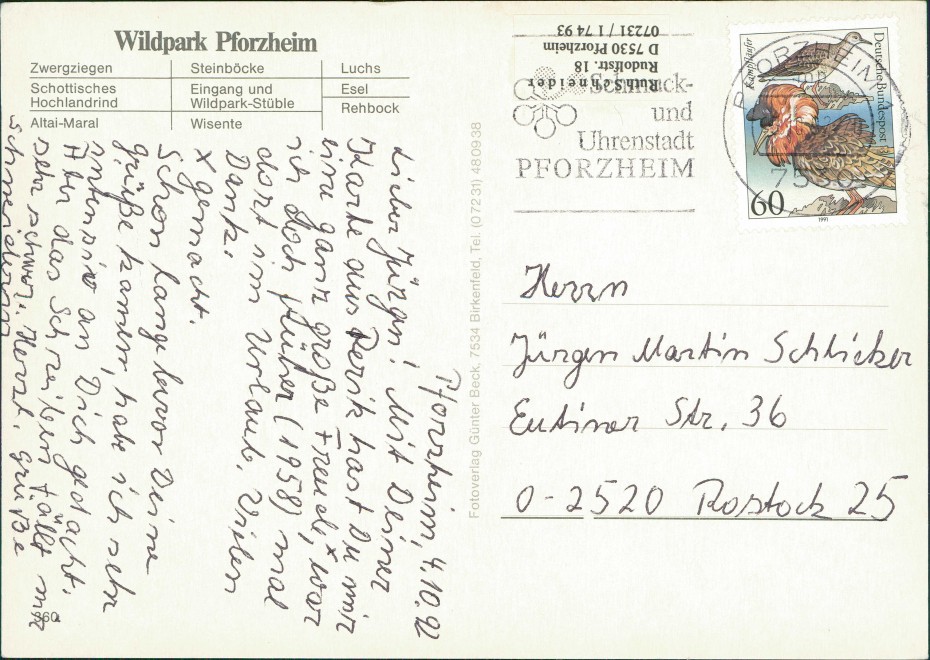 Wildpark Pforzheim
Zwergziegen
Steinböcke
Luchs
Schottisches
Hochlandrind
Eingang und
Wildpark-Stüble
Esel
Rehbock
Altai-Maral
Wisente
Ruth Schneider
Rudolfstr. 18
D 7530 Pforzheim
07231 / 1 74 93
Schmuck-
und
Uhrenstadt
PFORZHEIM
PFORZHEIM
Kampfläufer
Deutsche Bundespost
60
1991
Pforzheim, 4.10.92
Lieber Jürgen! Mit Deiner
Karte aus Rerik hast Du mir
eine ganz große Freude x
ich doch früher (1958) mal
war
dort im Urlaub. Vielen
Dank.
x gemacht.
Schon lange bevor Deine
Grüße kamen, habe ich sehr
intensiv an Dich gedacht.
Aber das Schreiben fällt mir
sehr schwer. Herzl. Grüße
Fotoverlag Günter Beck, 7534 Birkenfeld, Tel. (07231) 480938
Herrn
Jürgen Martin Schlicker
Eutiner Str. 36
O-2520 Rostock 25